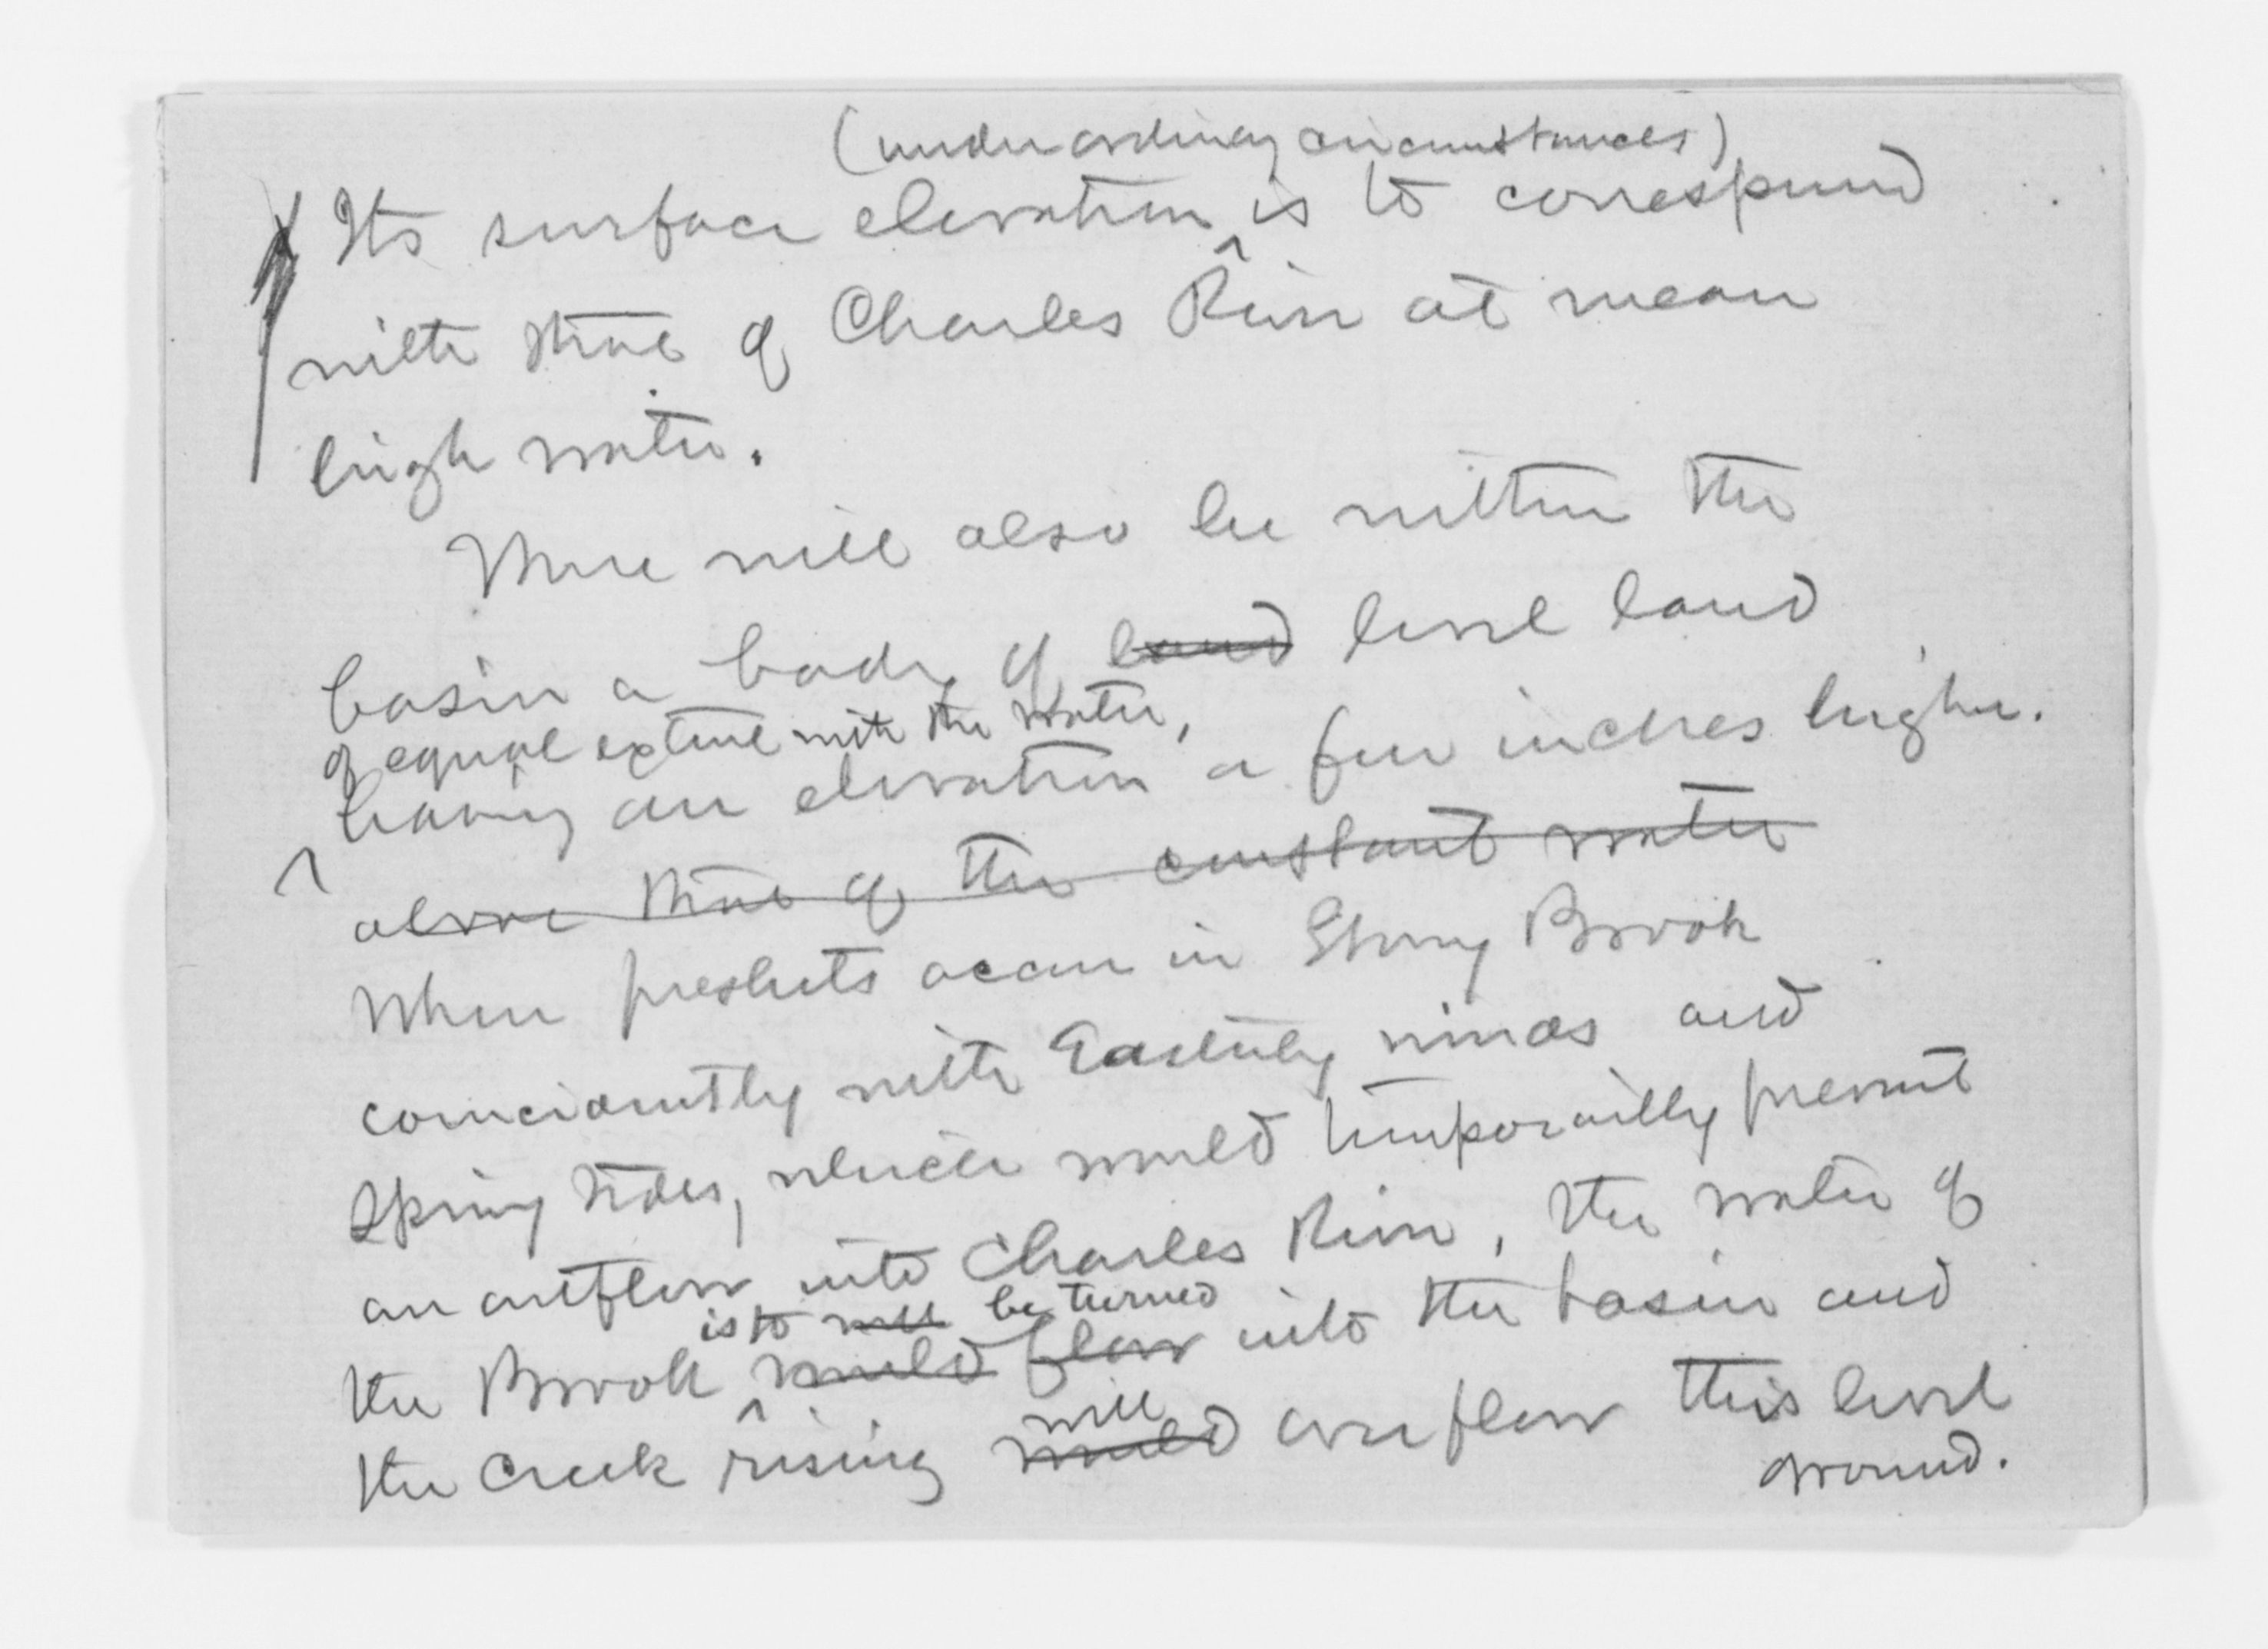 (under ordinary circumstances)
Its surface elevation is to correspond
with that of Charles River at mean
high water.
There will also be within the
basin a body of land level land
of equal extent with the water,
having an elevation a few inches higher.
above that of the constant water
When freshets occur in Stony Brook
coincidently with Easterly winds and
Spring tides, which would temporarily prevent
an outflow into Charles River, the water of
is to will be turned
the Brook would flow into the basin and
will
the Creek rising would overflow this level
ground.